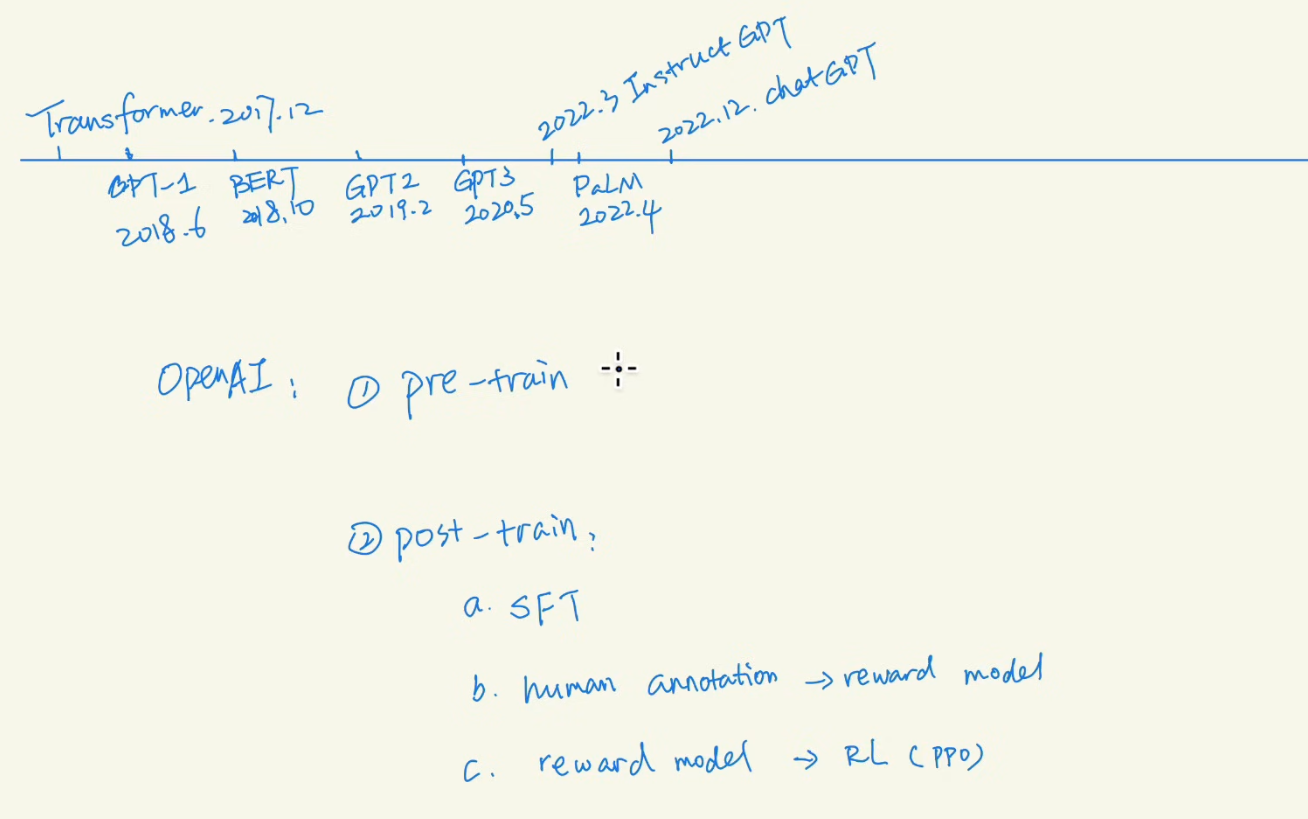 2022.3 InstructGPT
2022.12. chatGPT
Transformer.2017.12
GPT-1
2018.6
BERT
2018.10
GPT2
2019.2
GPT3
2020.5
PaLM
2022.4
OpenAI: ① pre-train
② post-train:
a. SFT
b. human annotation → reward model
c. reward model → RL (PPO)